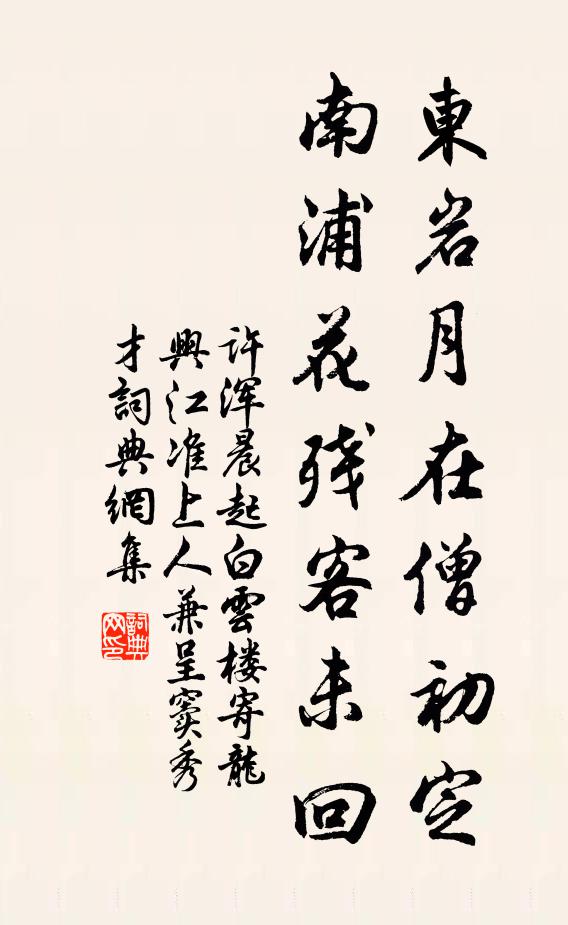 東岩月在僧初定
南浦花残客未回
許渾晨起白雲楼寄龍
興江准上人兼呈窦秀
才詞典網集
詞典
网印